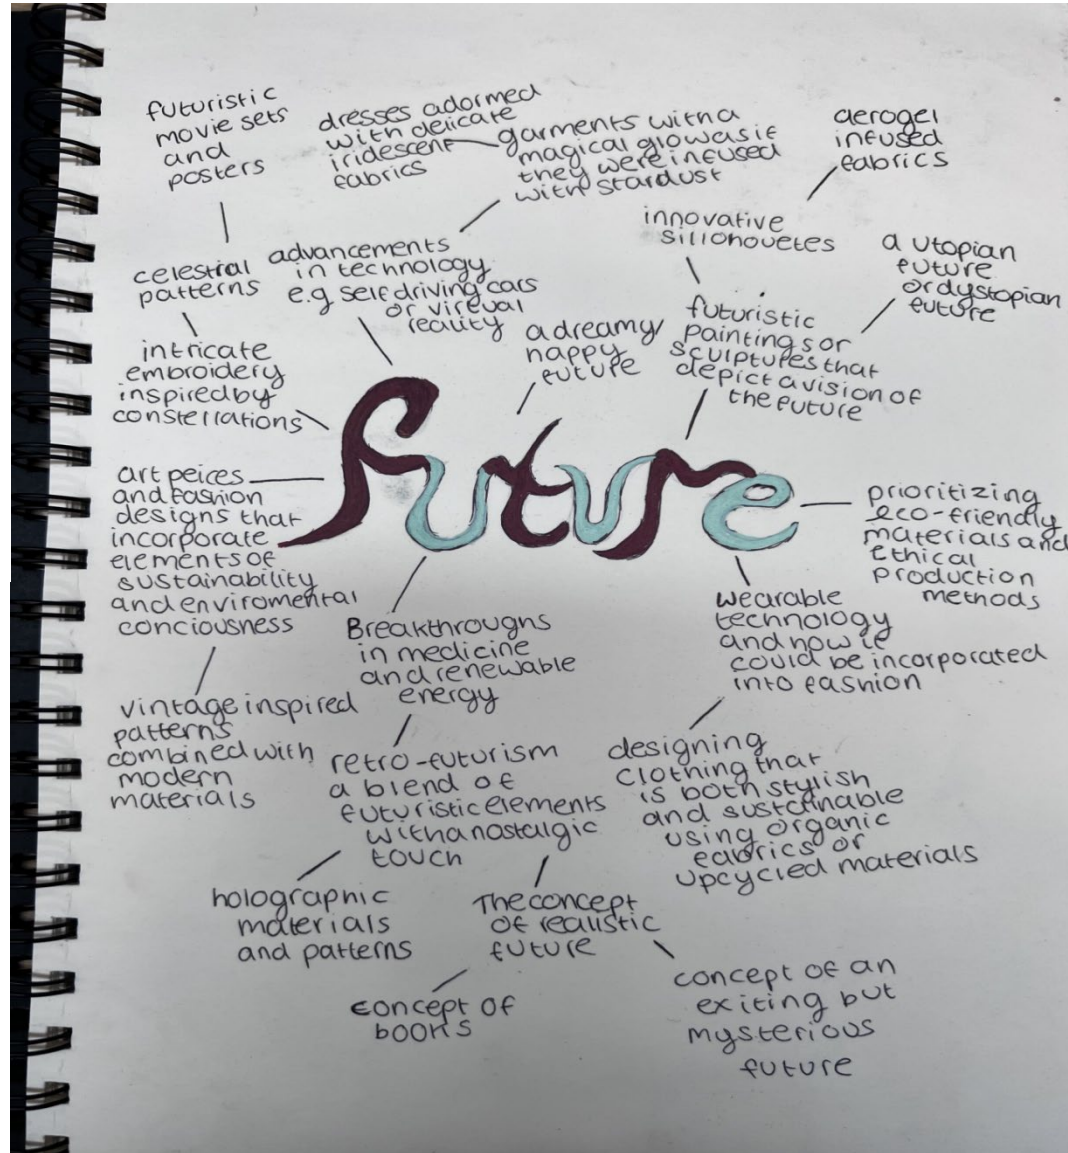 futuristic
movie sets
and
posters
dresses adormed
with delicate
iridescent
fabrics
garments with a
magical glow as if
they were infused
with stardust
aerogel
infused
fabrics
innovative
sillohouetes
a utopian
future
or dystopian
future
celestral
patterns
advancements
in technology
e.g self driving cars
or vireual
reality
a dreamy
happy
future
futuristic
paintings or
sculptures that
depict a vision of
the future
intricate
embroidery
inspired by
constellations
future
art peices
and fashion
designs that
incorporate
elements of
sustainability
and enviromental
conciousness
prioritizing
eco-friendly
materials and
ethical
production
methods
Breakthroughs
in medicine
and renewable
energy
wearable
technology
and how it
could be incorporated
into fashion
vintage inspired
patterns
combined with
modern
materials
retro-futurism
a blend of
futuristic elements
with a nostalgic
touch
designing
clothing that
is both stylish
and sustainable
using organic
fabrics or
upcycled materials
holographic
materials
and patterns
The concept
of realistic
future
concept of
books
concept of an
exiting but
mysterious
future